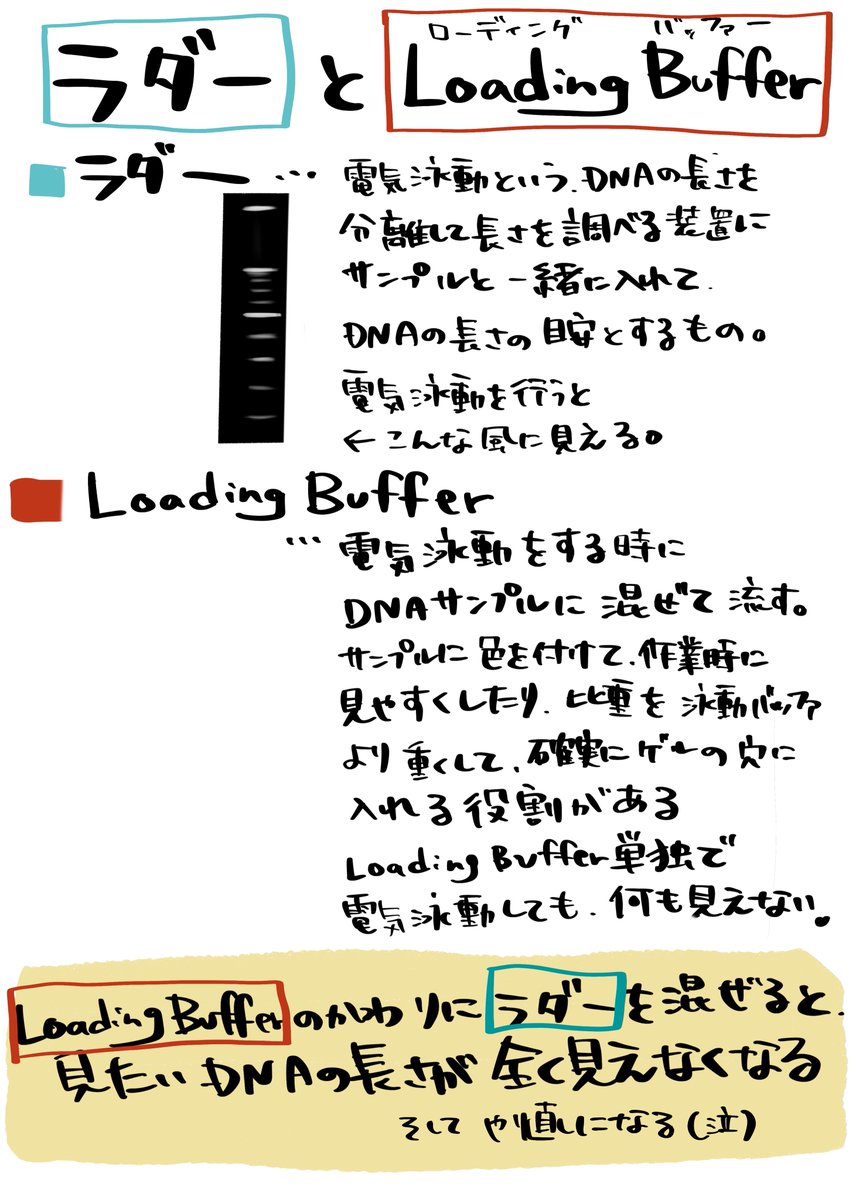 ローディング バッファー
ラダーと Loading Buffer
ラダー … 電気泳動という、DNAの長さを
分離して長さを調べる装置に
サンプルと一緒に入れて、
DNAの長さの目安とするもの。
電気泳動を行うと
←こんな風に見える。
Loading Buffer
… 電気泳動をする時に
DNAサンプルに混ぜて流す。
サンプルに色を付けて、作業時に
見やすくしたり、比重を泳動バッファ
より重くして、確実にゲルの穴に
入れる役割がある
Loading Buffer単独で
電気泳動しても、何も見えない。
Loading Bufferのかわりにラダーを混ぜると、
見たいDNAの長さが全く見えなくなる
そしてやり直しになる(泣)